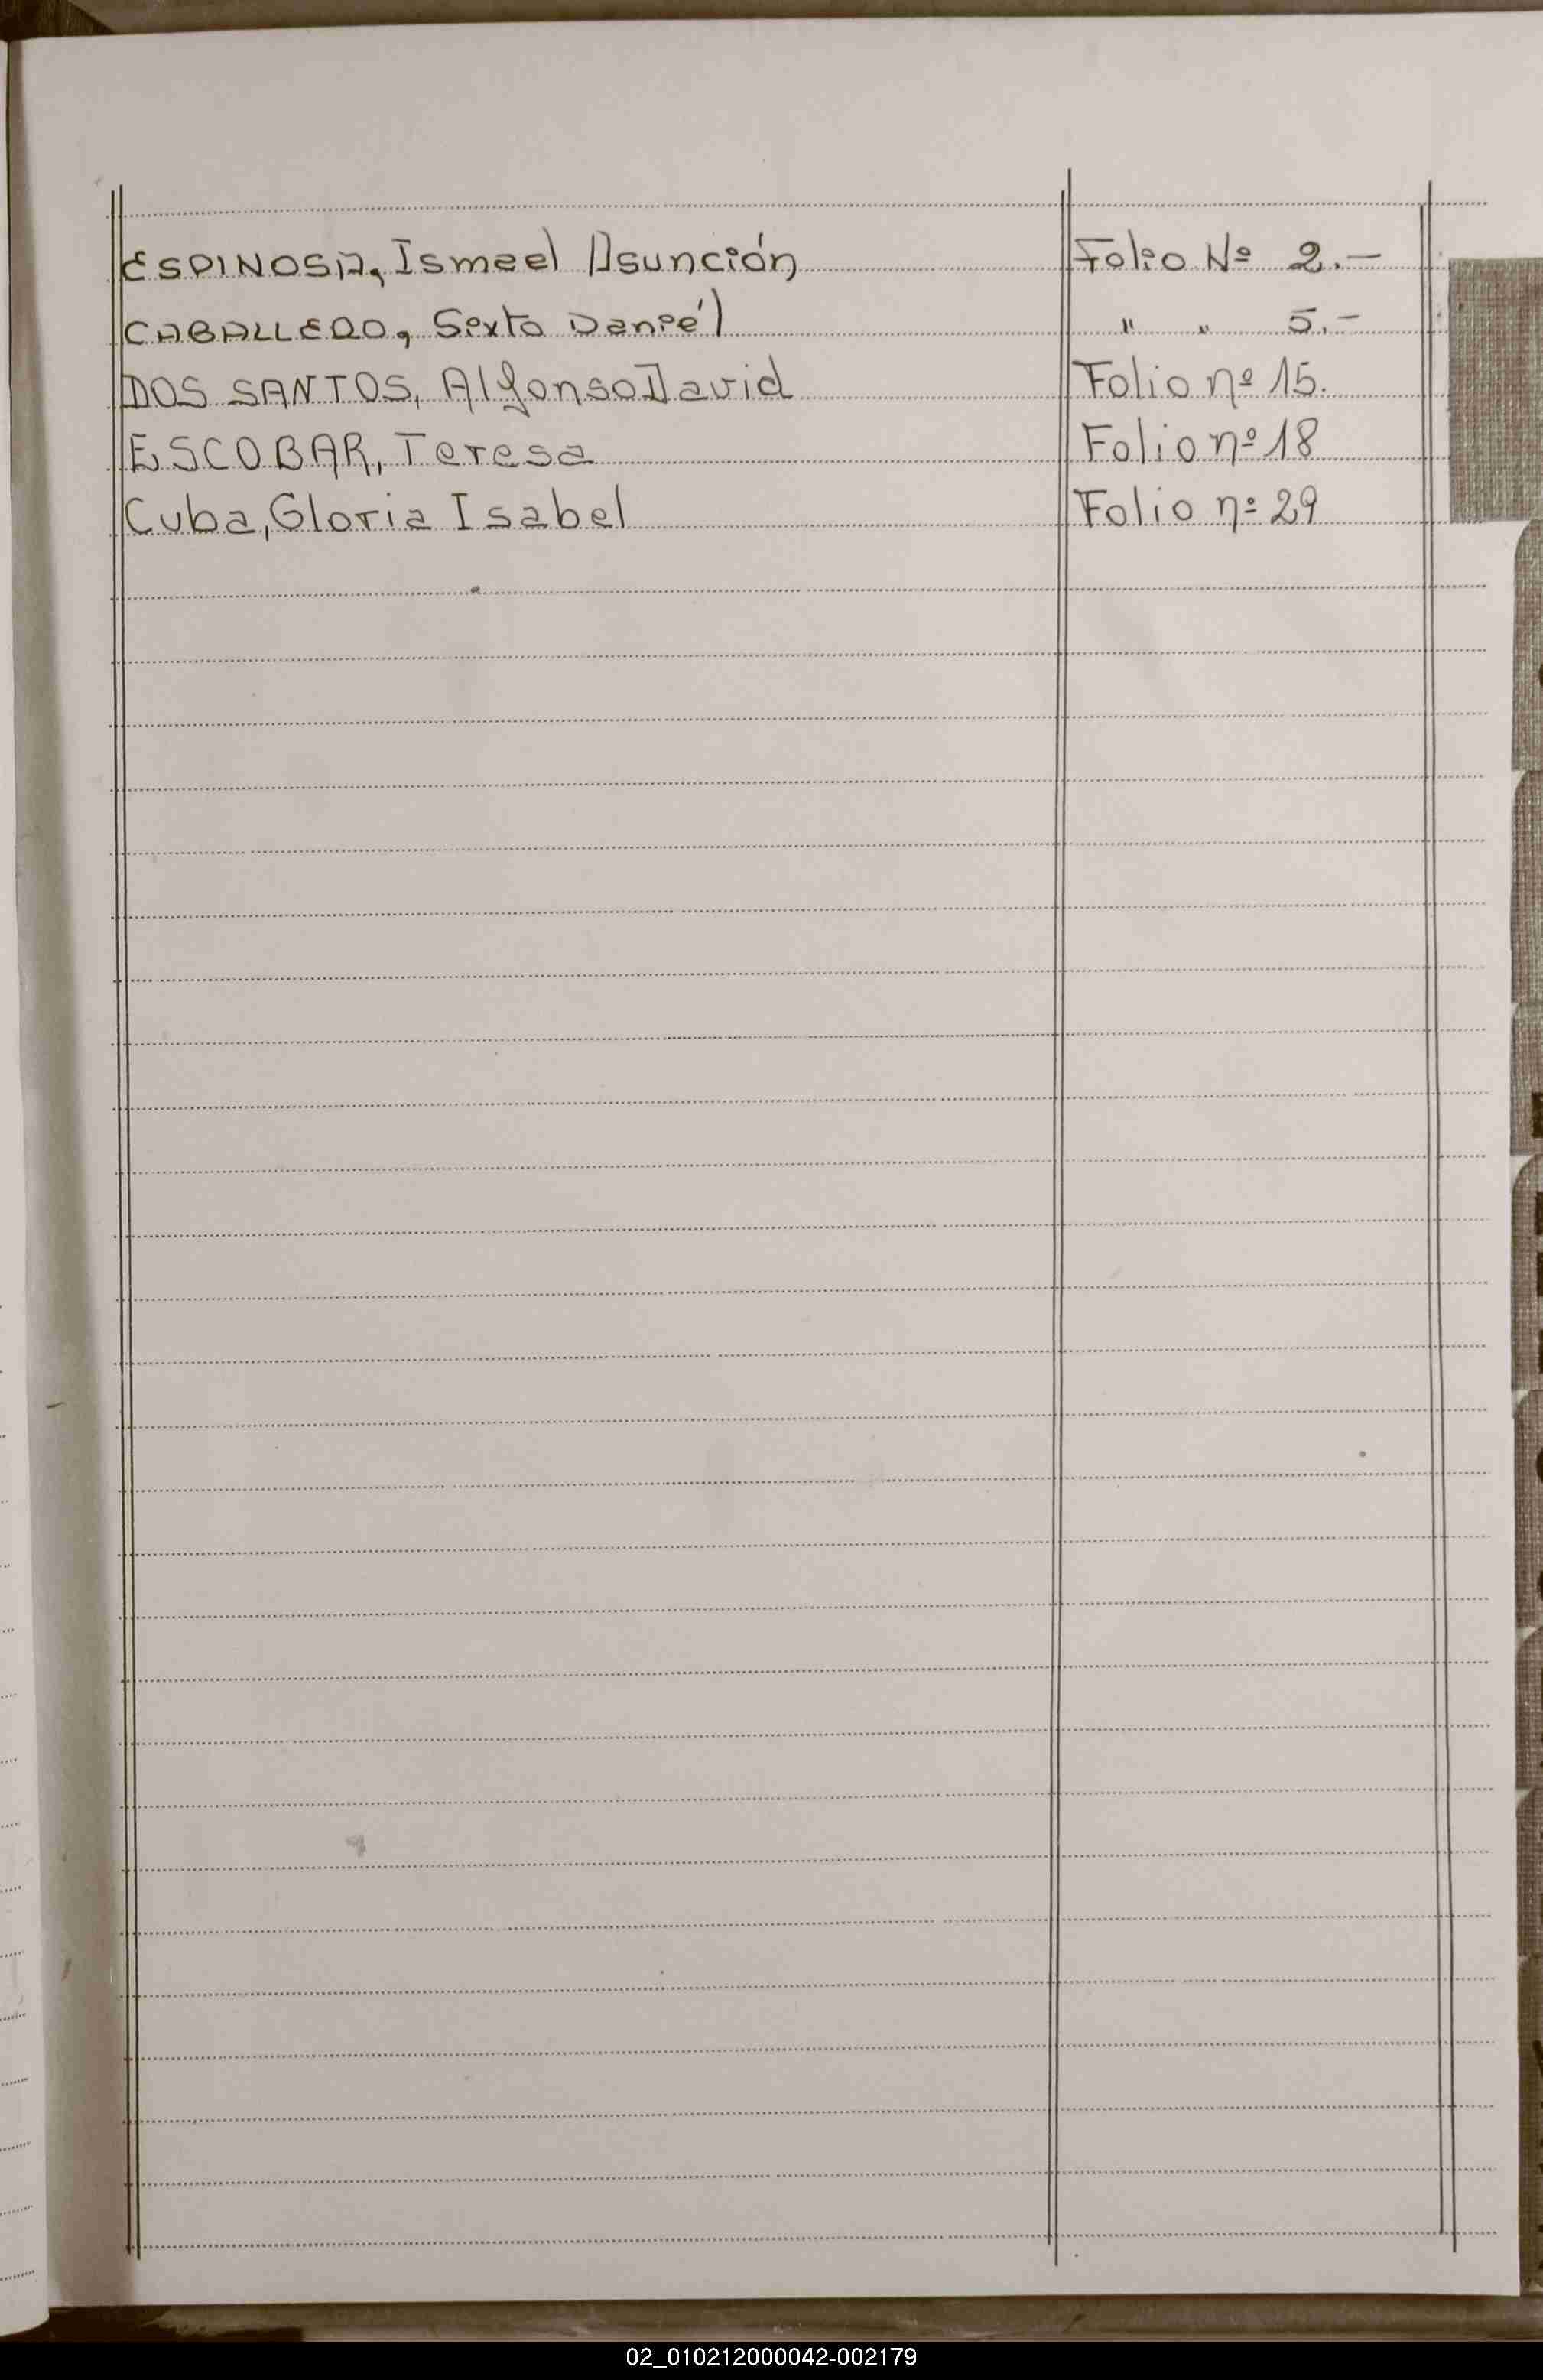 ESPINOSA, Ismael Asunción Folio Nº 2.-
CABALLERO, Sixto Daniél " " 5.-
DOS SANTOS, Alfonso David Folio nº 15.
ESCOBAR, Teresa Folio nº 18
Cuba, Gloria Isabel Folio nº 29
02_010212000042-002179